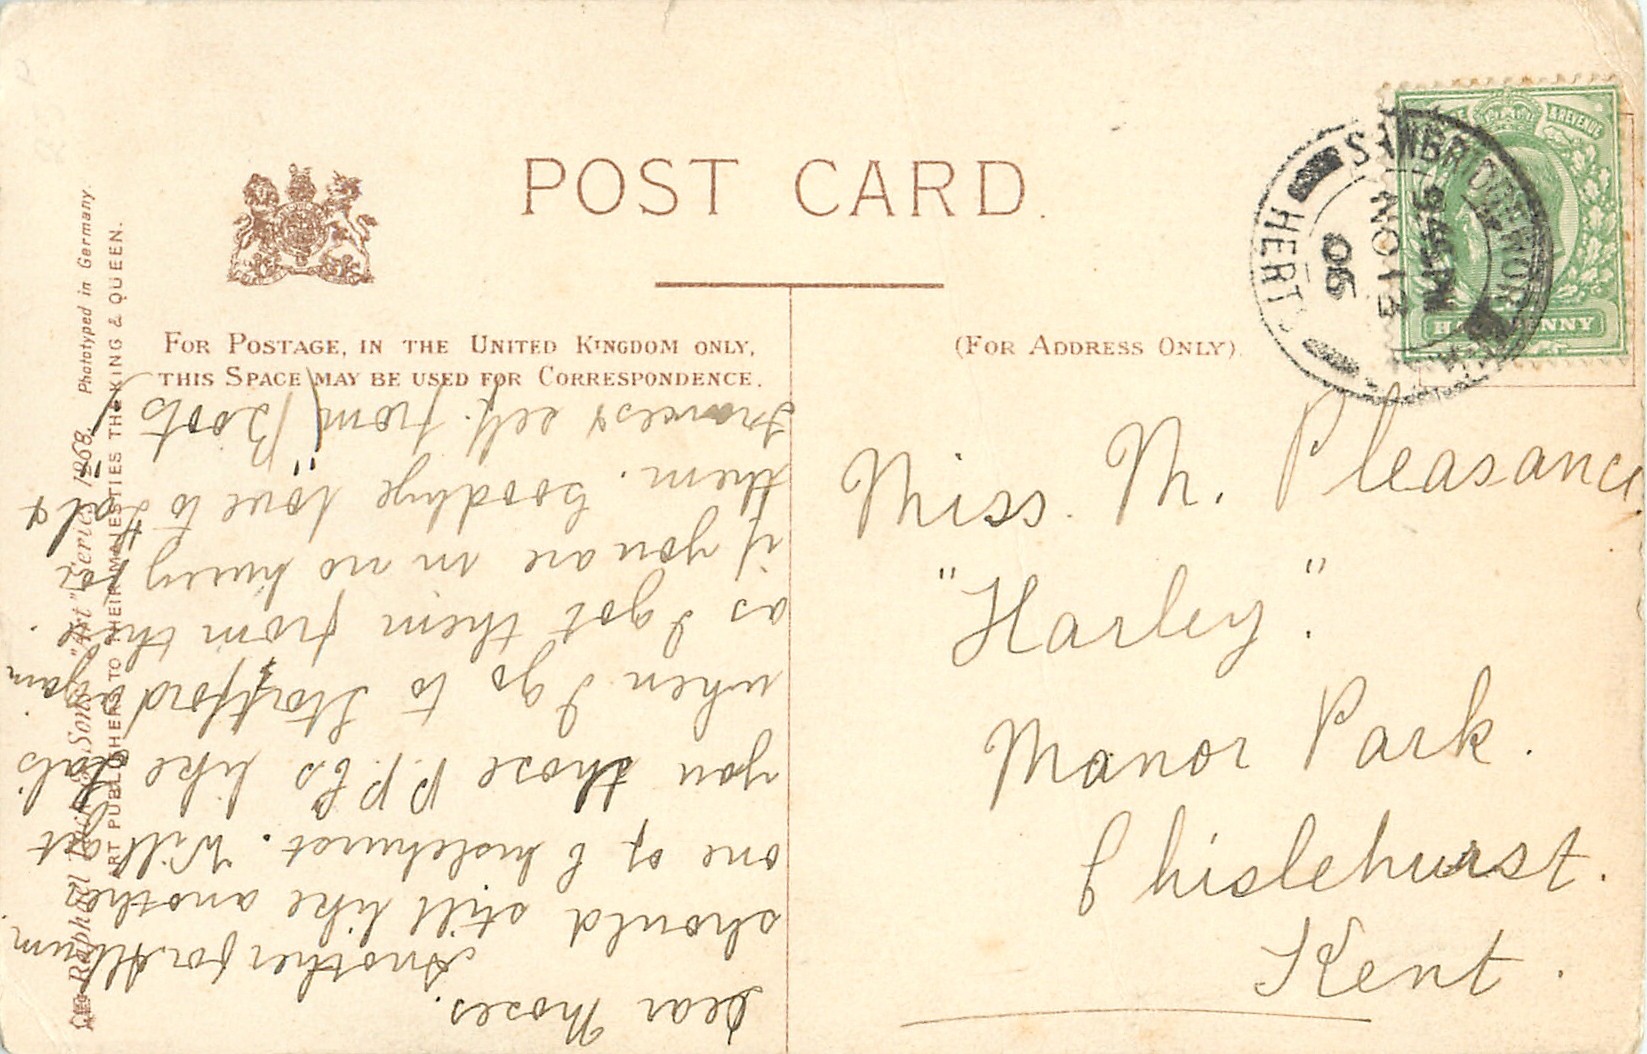 POST CARD.
FOR POSTAGE, IN THE UNITED KINGDOM ONLY,
THIS SPACE MAY BE USED FOR CORRESPONDENCE.
(FOR ADDRESS ONLY).
& REVENUE
HALFPENNY
SAWBRIDGEWORTH
HERTS
9 45 PM
NO 13
06
Miss. M. Pleasance
"Harley".
Manor Park.
Chislehurst.
Kent.
Dear Moses.
Another for Album
should still like another
one of Chislehurst. Will get
you those P.P.Cs like Gals
when I go to Stortford again
as I got them from there.
if you are in no hurry for
them. Goodbye love to Gal &
Frances & self. from "Boots"
Raphael Tuck & Sons' "Art" Series 1868. Phototyped in Germany.
ART PUBLISHERS TO THEIR MAJESTIES THE KING & QUEEN.